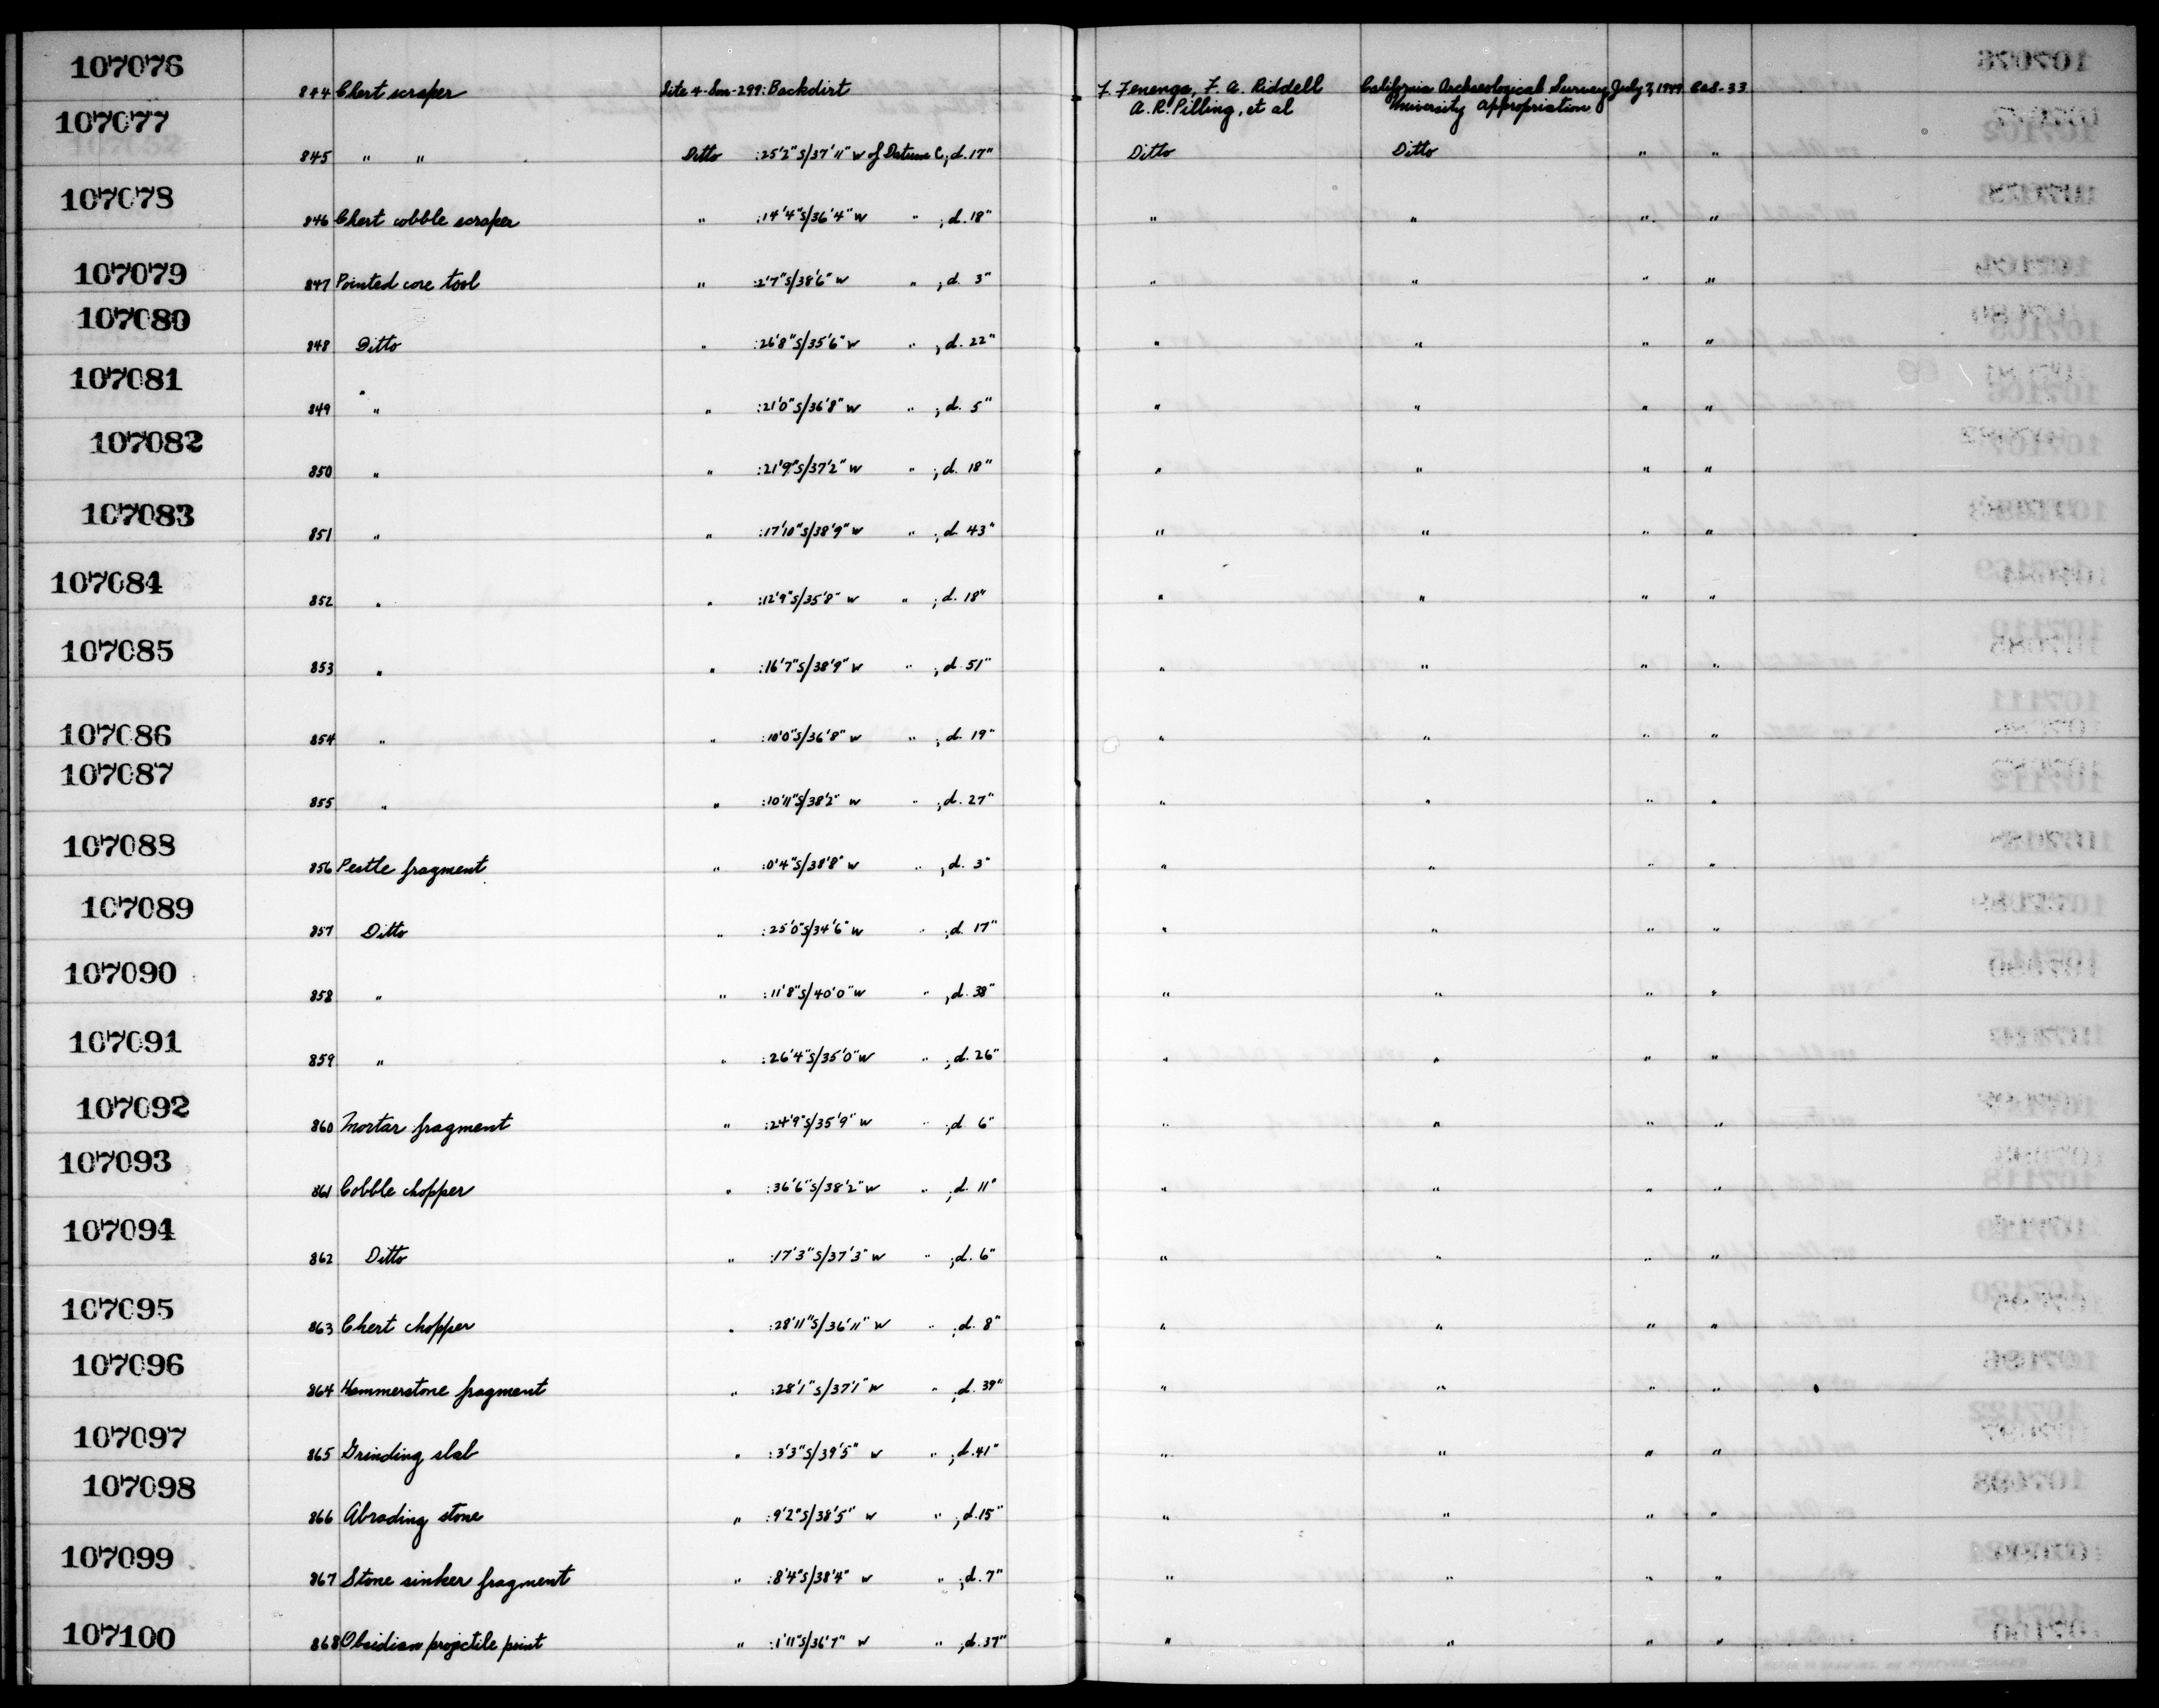 107076
844 Chert scraper Site 4-Son-299: Backdirt F. Fenenga, F. A. Riddell California Archaeological Survey July 7, 1949 CAS-33
A. R. Pilling, et al University Appropriation
107077
845 " " Ditto :25'2"S/37'11" W of Datum C; d. 17" Ditto Ditto " "
107078
846 Chert cobble scraper " :14'4"S/36'4" W " ; d. 18" " " " "
107079
847 Pointed core tool " :2'7"S/38'6" W " ; d. 3" " " " "
107080
848 Ditto " :26'8"S/35'6" W " ; d. 22" " " " "
107081
849 " " :21'0"S/36'8" W " ; d. 5" " " " "
107082
850 " " :21'9"S/37'2" W " ; d. 18" " " " "
107083
851 " " :17'10"S/38'9" W " ; d. 43" " " " "
107084
852 " " :12'9"S/35'8" W " ; d. 18" " " " "
107085
853 " " :16'7"S/38'9" W " ; d. 51" " " " "
107086
854 " " :10'0"S/36'8" W " ; d. 19" " " " "
107087
855 " " :10'11"S/38'2" W " ; d. 27" " " " "
107088
856 Pestle fragment " :0'4"S/38'8" W " ; d. 3" " " " "
107089
857 Ditto " :25'0"S/34'6" W " ; d. 17" " " " "
107090
858 " " :11'8"S/40'0" W " ; d. 38" " " " "
107091
859 " " :26'4"S/35'0" W " ; d. 26" " " " "
107092
860 Mortar fragment " :24'9"S/35'9" W " ; d. 6" " " " "
107093
861 Cobble chopper " :36'6"S/38'2" W " ; d. 11" " " " "
107094
862 Ditto " :17'3"S/37'3" W " ; d. 6" " " " "
107095
863 Chert chopper " :28'11"S/36'11" W " ; d. 8" " " " "
107096
864 Hammerstone fragment " :28'1"S/37'1" W " ; d. 39" " " " "
107097
865 Grinding slab " :3'3"S/39'5" W " ; d. 41" " " " "
107098
866 Abrading stone " :9'2"S/38'5" W " ; d. 15" " " " "
107099
867 Stone sinker fragment " :8'4"S/38'4" W " ; d. 7" " " " "
107100
868 Obsidian projectile point " :1'11"S/36'7" W " ; d. 37" " " " "